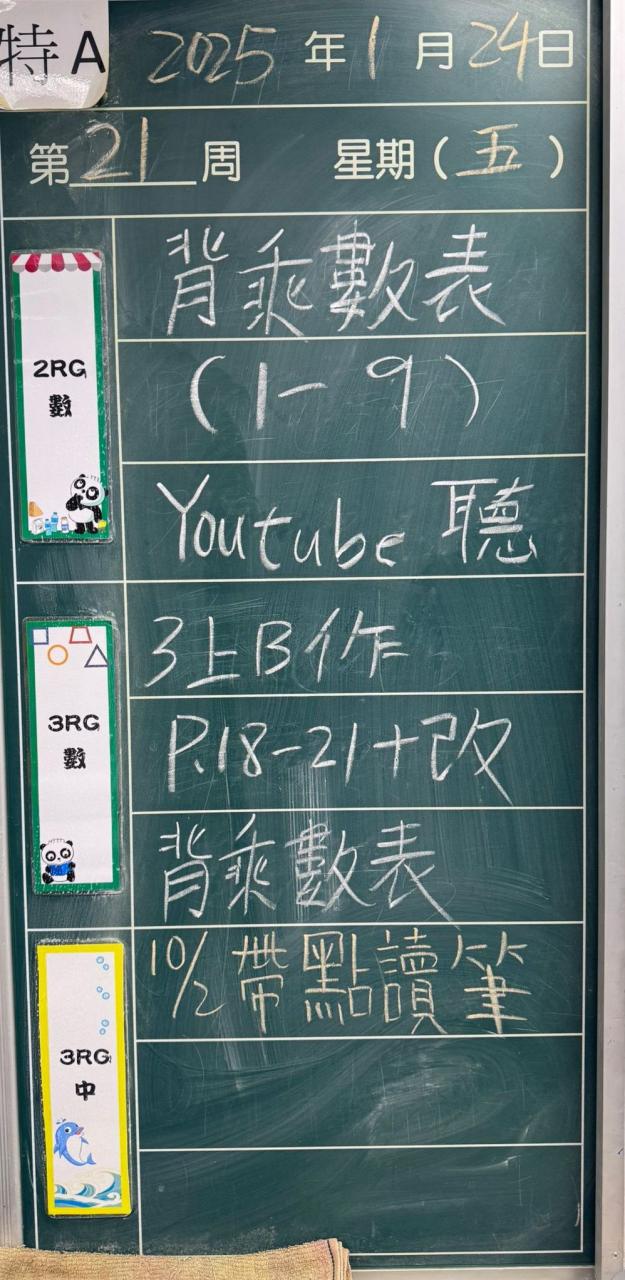 特A
2025年1月24日
第21周 星期(五)
2RG
數
背乘數表
(1-9)
Youtube 聽
3RG
數
3上B作
P.18-21+改
背乘數表
3RG
中
10/2 帶點讀筆